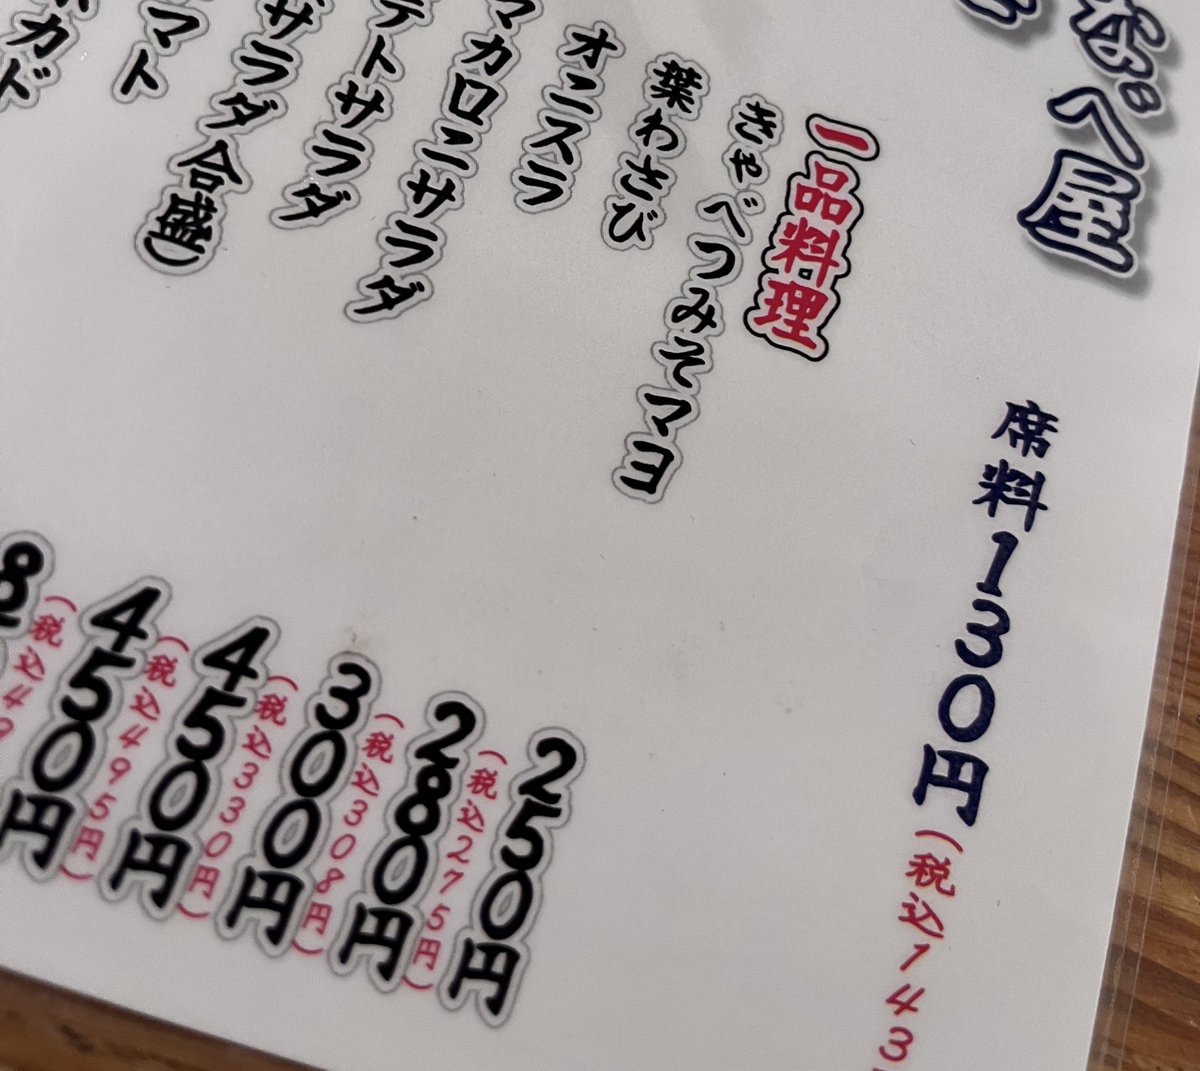 なべ屋
席料130円(税込143
一品料理
きゃべつみそマヨ 250円(税込275円)
葉わさび 280円(税込308円)
オニスラ 300円(税込330円)
マカロニサラダ 450円(税込495円)
テトサラダ 450円(税込49
サラダ合盛) 8
マト
カド